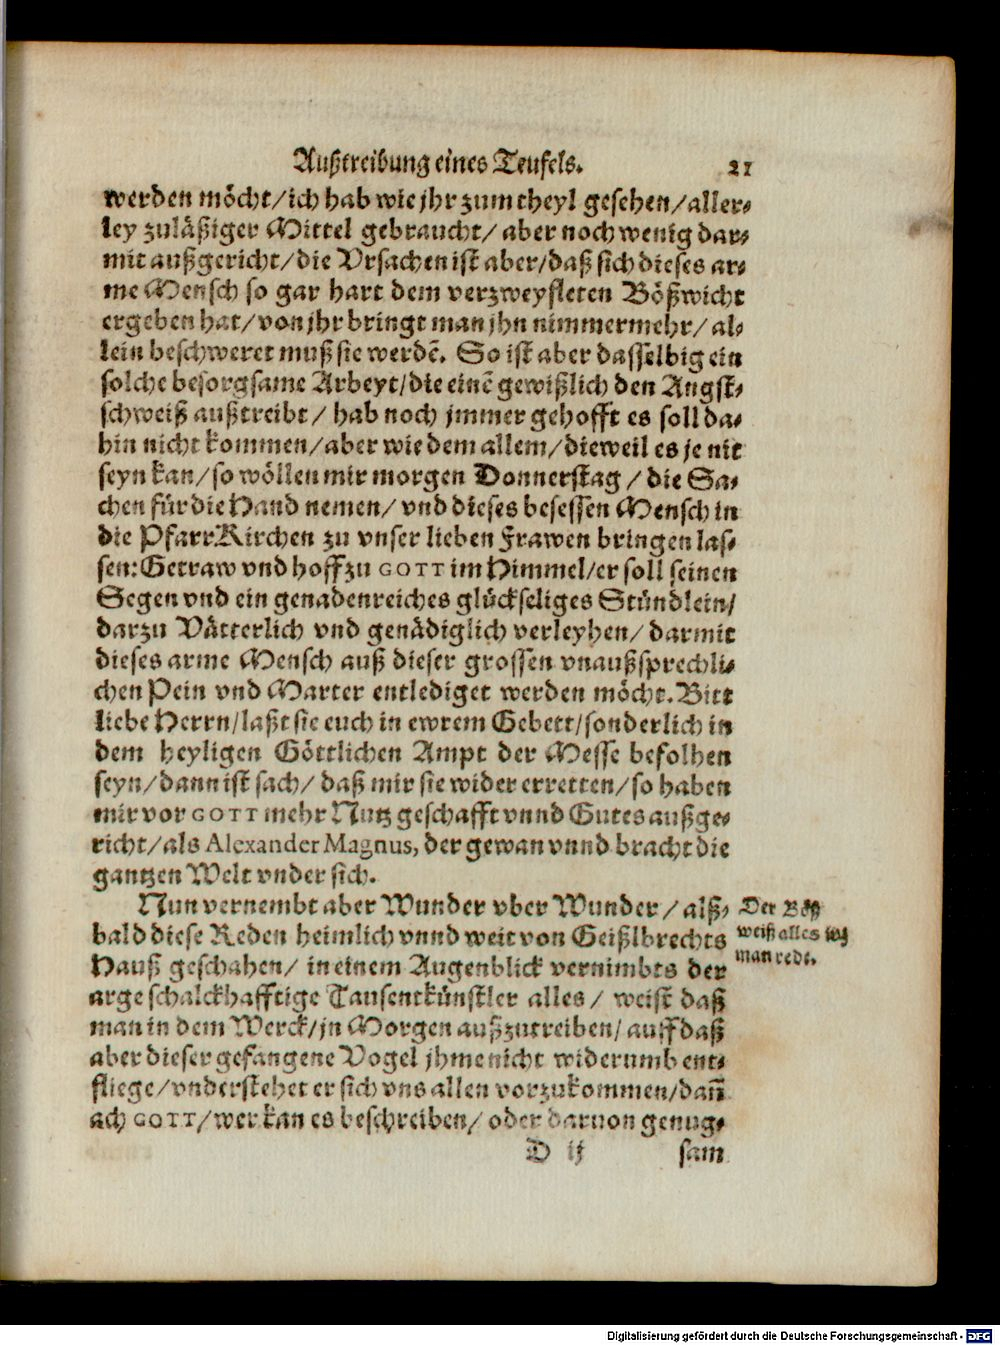 Außtreibung eines Teufels. 21
werden möcht/ich hab wie jhr zum theyl gesehen/aller-
ley zuläßiger Mittel gebraucht/ aber noch wenig dar-
mit außgericht/die Vrsachen ist aber/daß sich dieses ar-
me Mensch so gar hart dem verzweyfleten Bößwicht
ergeben hat/von jhr bringt man jhn nimmermehr/ al-
lein beschweret muß sie werdẽ. So ist aber dasselbig ein
solche besorgsame Arbeyt/die einẽ gewißlich den Angst-
schweiß außtreibt/ hab noch jmmer gehofft es soll da-
hin nicht kommen/aber wie dem allem/dieweil es je nit
seyn kan/so wöllen mir morgen Donnerstag/ die Sa-
chen für die Hand nemen/ vnd dieses besessen Mensch in
die PfarrKirchen zu vnser lieben Frawen bringen las-
sen: Getraw vnd hoff zu GOTT im Himmel/er soll seinen
Segen vnd ein genadenreiches glückseliges Stündlein/
darzu Vätterlich vnd genädiglich verleyhen/ darmit
dieses arme Mensch auß dieser grossen vnaußsprechli-
chen Pein vnd Marter entlediget werden möcht. Bitt
liebe Herrn/laßt sie euch in ewrem Gebett/sonderlich in
dem heyligen Göttlichen Ampt der Messe befolhen
seyn/dann ist sach/ daß mir sie wider erretten/so haben
mir vor GOTT mehr Nutz geschafft vnnd Gutes außge-
richt/als Alexander Magnus, der gewan vnnd bracht die
gantzen Welt vnder sich.
Nun vernembt aber Wunder vber Wunder/ alß-
bald diese Reden heimlich vnnd weit von Geißlbrechts
Hauß geschahen/ in einem Augenblick vernimbts der
arge schalckhafftige Tausentkünstler alles/ weist daß
man in dem Werck/jn Morgen außzutreiben/ auff daß
aber dieser gefangene Vogel jhme nicht widerumb ent-
fliege/vnderstehet er sich vns allen vorzukommen/dañ
ach GOTT/wer kan es beschreiben/ oder daruon genug-
D ij sam
Der Böß
weiß alles wz
man redt.
Digitalisierung gefördert durch die Deutsche Forschungsgemeinschaft - DFG